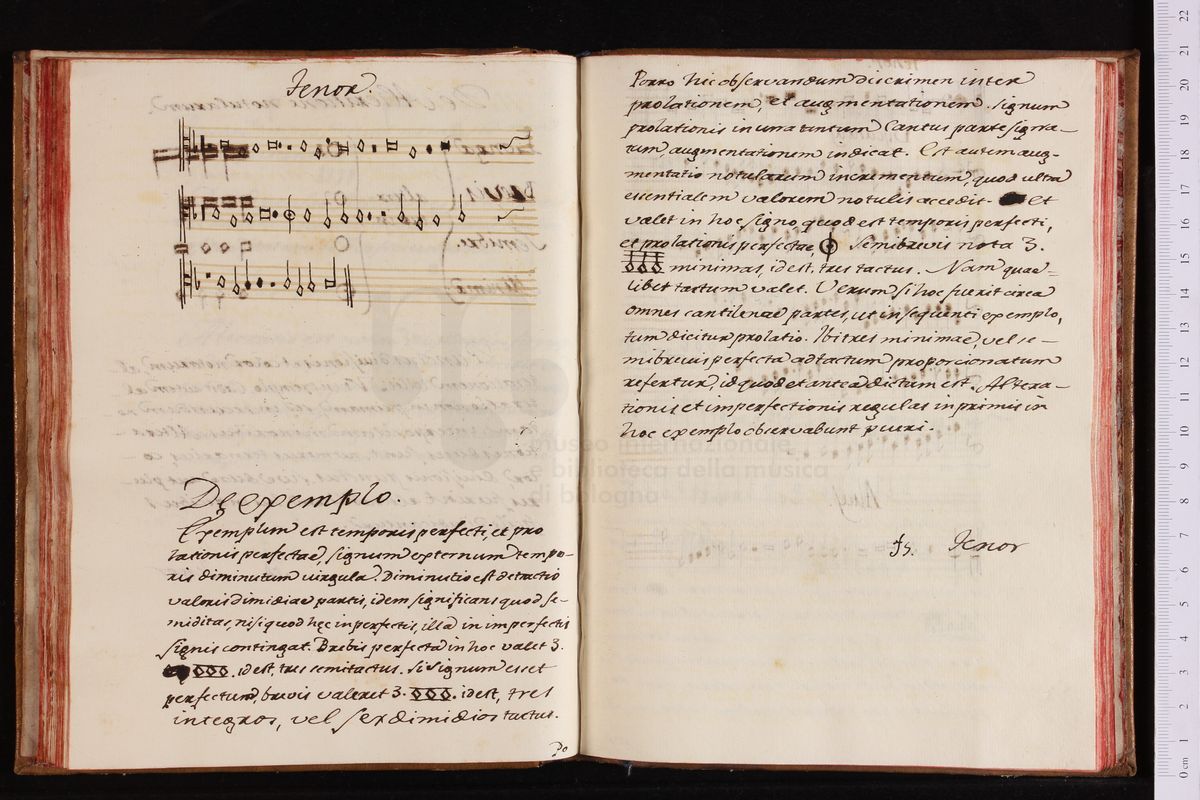 Tenor.
De exemplo.
Exemplum est temporis perfecti, et pro
lationis perfectae, signum externum tempo-
ris diminutum uirgula. Diminutio est detractio
valoris dimidiae partis, idem significans quod se-
miditas, nisi quod hęc in perfectis, illa in imperfectis
signis contingat. Brebis perfecta in hoc valet 3.
id est, tres semitactus. Si signum esset
perfectum, brevis valeret 3. id est, tres
integros, vel sex dimidios tactus.
Po
Porro hic observandum discrimen inter
prolationem, et augmentationem. Signum
prolationis in una tantum Cantus parte signa-
tum augmentationem indicat. Est autem aug-
mentatio notularum incrementum, quod ultra
essentialem valorem notulis accedit. Et
valet in hoc signo, quod est temporis perfecti,
et prolationis perfectae, semibrevis nota 3.
minimas, id est, tres tactus. Nam quae-
libet tactum valet. Verum si hoc fuerit circa
omnes cantilenae partes, ut in sequenti exemplo,
tum dicitur prolatio. Ubi tres minimae, vel se-
mibrevis perfecta ad tactum proporcionatum
refertur, id quod et antea dictum est. Altera-
tionis et imperfectionis regulas in primis in
hoc exemplo observabunt pueri.
Tenor
museo internazionale
e biblioteca della musica
di bologna
0 cm 1 2 3 4 5 6 7 8 9 10 11 12 13 14 15 16 17 18 19 20 21 22